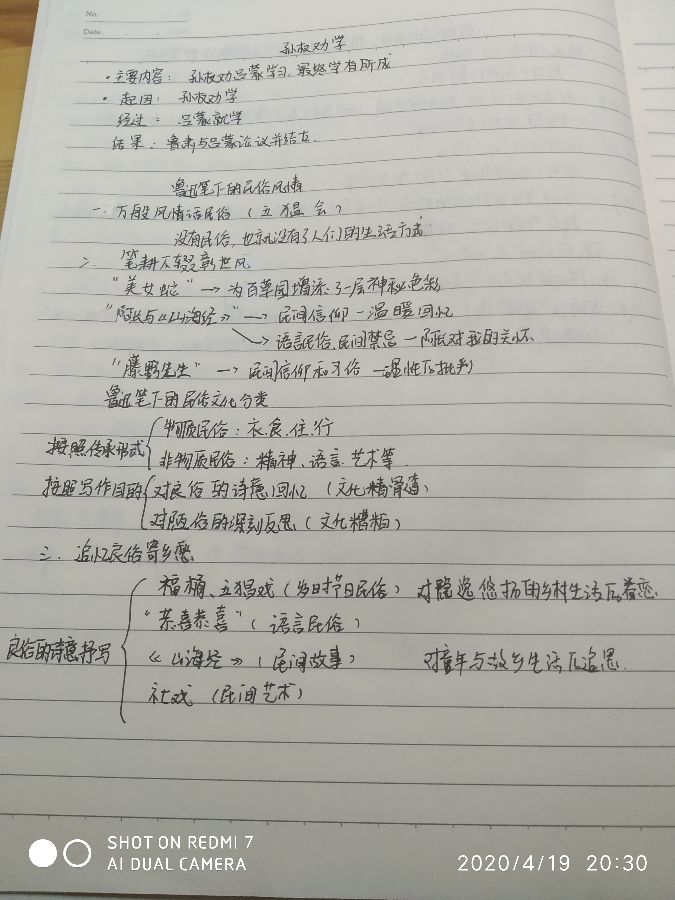 No.
Date.
孙权劝学
·主要内容：孙权劝吕蒙学习，最终学有所成
·起因：孙权劝学
经过：吕蒙就学
结果：鲁肃与吕蒙论议并结友.
鲁迅笔下的民俗风情
一.万般风情话民俗（五猖会）
没有民俗，也就没有了人们的生活方式
二.笔耕不辍彰世风
"美女蛇"→为百草园增添了一层神秘色彩
"阿长与《山海经》→民间信仰－温暖回忆
→语言民俗、民间禁忌－阿长对我的关怀
"藤野先生"→民间信仰和习俗－理性反批判
鲁迅笔下的民俗文化分类
按照传承形式
物质民俗：衣.食.住.行
非物质民俗：精神、语言.艺术等.
按照写作目的
对良俗的诗意回忆（文化精骨遗）
对陋俗的深刻反思（文化糟粕）
三.追忆良俗寄乡愁
良俗的诗意抒写
福橘、五猖戏（岁时节日民俗） 对飘逸悠扬的乡村生活反眷恋.
"恭喜恭喜"（语言民俗）
《山海经》（民间故事） 对童年与故乡生活反追思.
社戏（民间艺术）
SHOT ON REDMI 7
AI DUAL CAMERA
2020/4/19 20:30